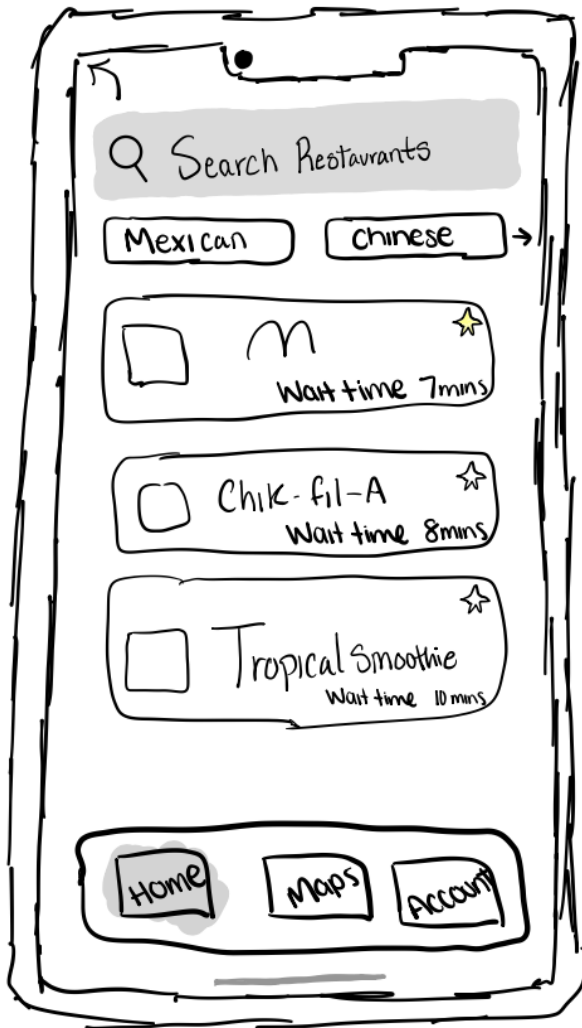 Search Restaurants
Mexican
Chinese
M
Wait time 7mins
Chik-fil-A
Wait time 8mins
Tropical Smoothie
Wait time 10 mins
Home
Maps
Account